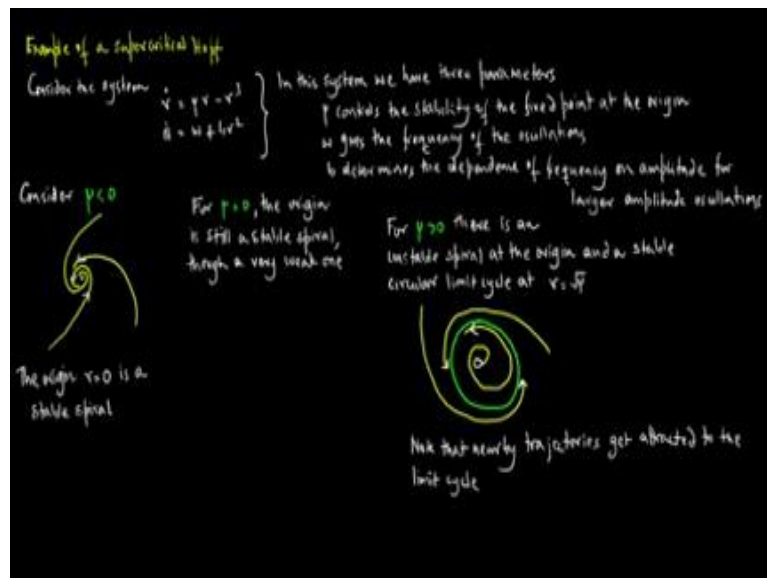 Example of a supercritical Hopf
Consider the system
ṙ = μr - r³
θ̇ = ω + br²
In this system we have three parameters
μ controls the stability of the fixed point at the origin
ω gives the frequency of the oscillations
b determines the dependence of frequency on amplitude for
larger amplitude oscillations
Consider μ<0
The origin r=0 is a
stable spiral
For μ=0, the origin
is still a stable spiral,
though a very weak one
For μ>0 there is an
unstable spiral at the origin and a stable
circular limit cycle at r=√μ
Note that nearby trajectories get attracted to the
limit cycle